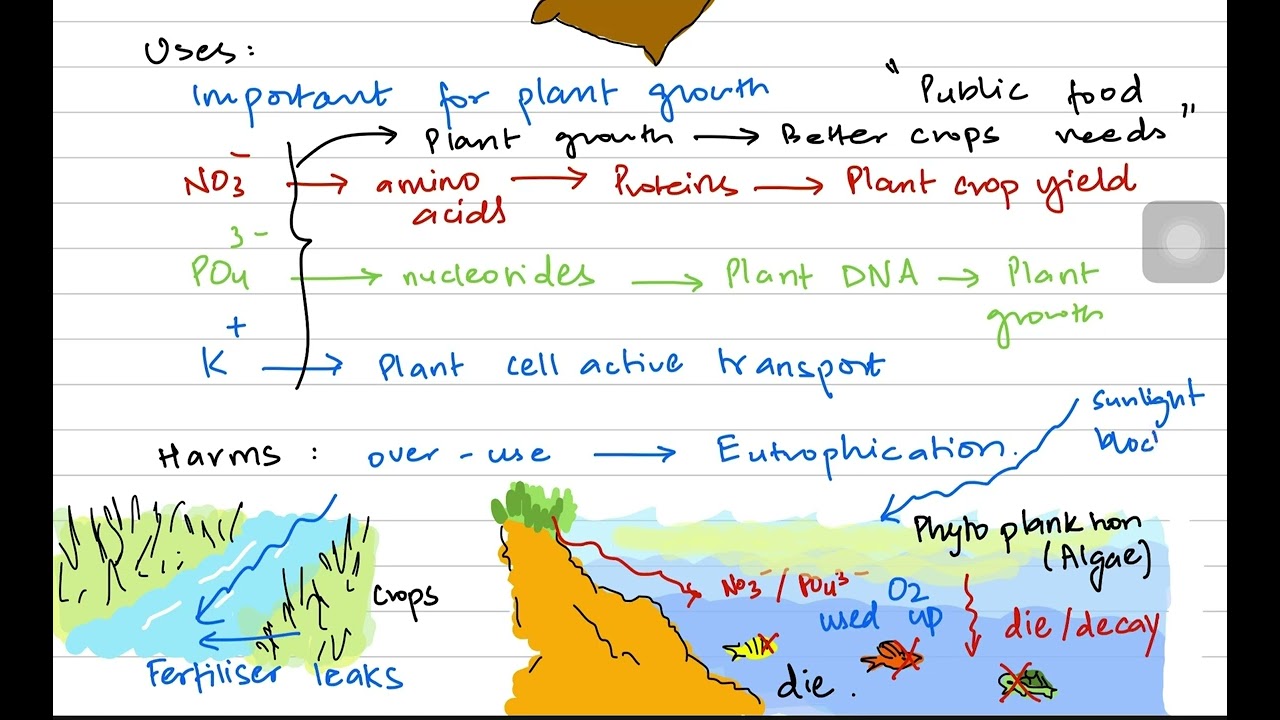 Uses:
Important for plant growth
"Public food needs"
Plant growth → Better crops
NO3⁻ → amino acids → Proteins → Plant crop yield
PO4³⁻ → nucleotides → Plant DNA → Plant growth
K⁺ → Plant cell active transport
Harms: over-use → Eutrophication.
sunlight
bloc
Phytoplankton
(Algae)
NO3⁻/PO4³⁻
O2
used up
die/decay
crops
Fertiliser leaks
die.